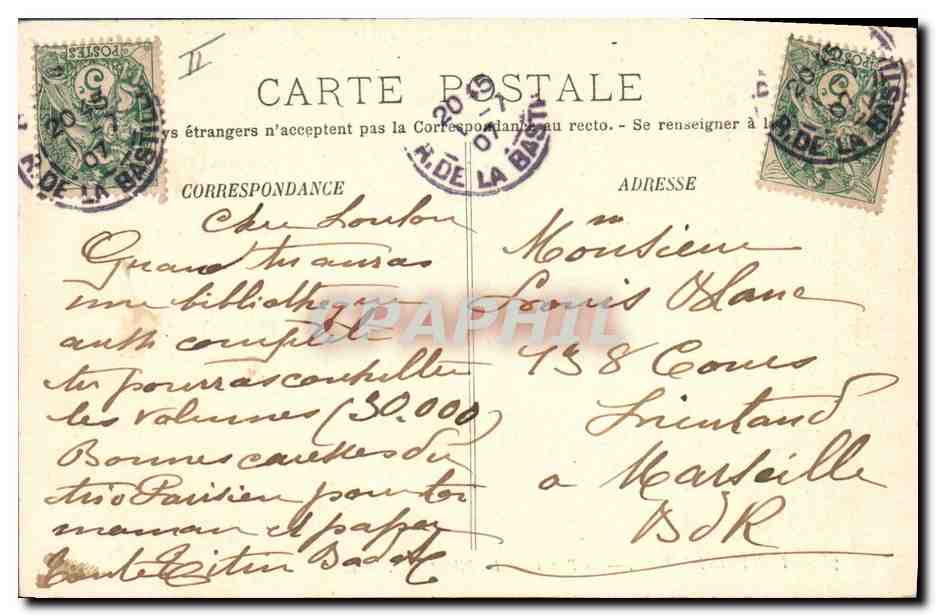 II
CARTE POSTALE
ys étrangers n'acceptent pas la Correspondance au recto. - Se renseigner à la
CORRESPONDANCE
ADRESSE
20 45
1 - 1
07
R. DE LA BASTI
POSTES
5
Cher Loulou
Quand tu auras
une bibliothèque
aussi complète
tu pourras conseiller
les volumes (30.000)
Bonnes caresses du
trio Parisien pour toi
maman et papa
Tante Titin
Monsieur
Louis Blanc
138 Cours
Lieutaud
a Marseille
BdR
CPAPHIL